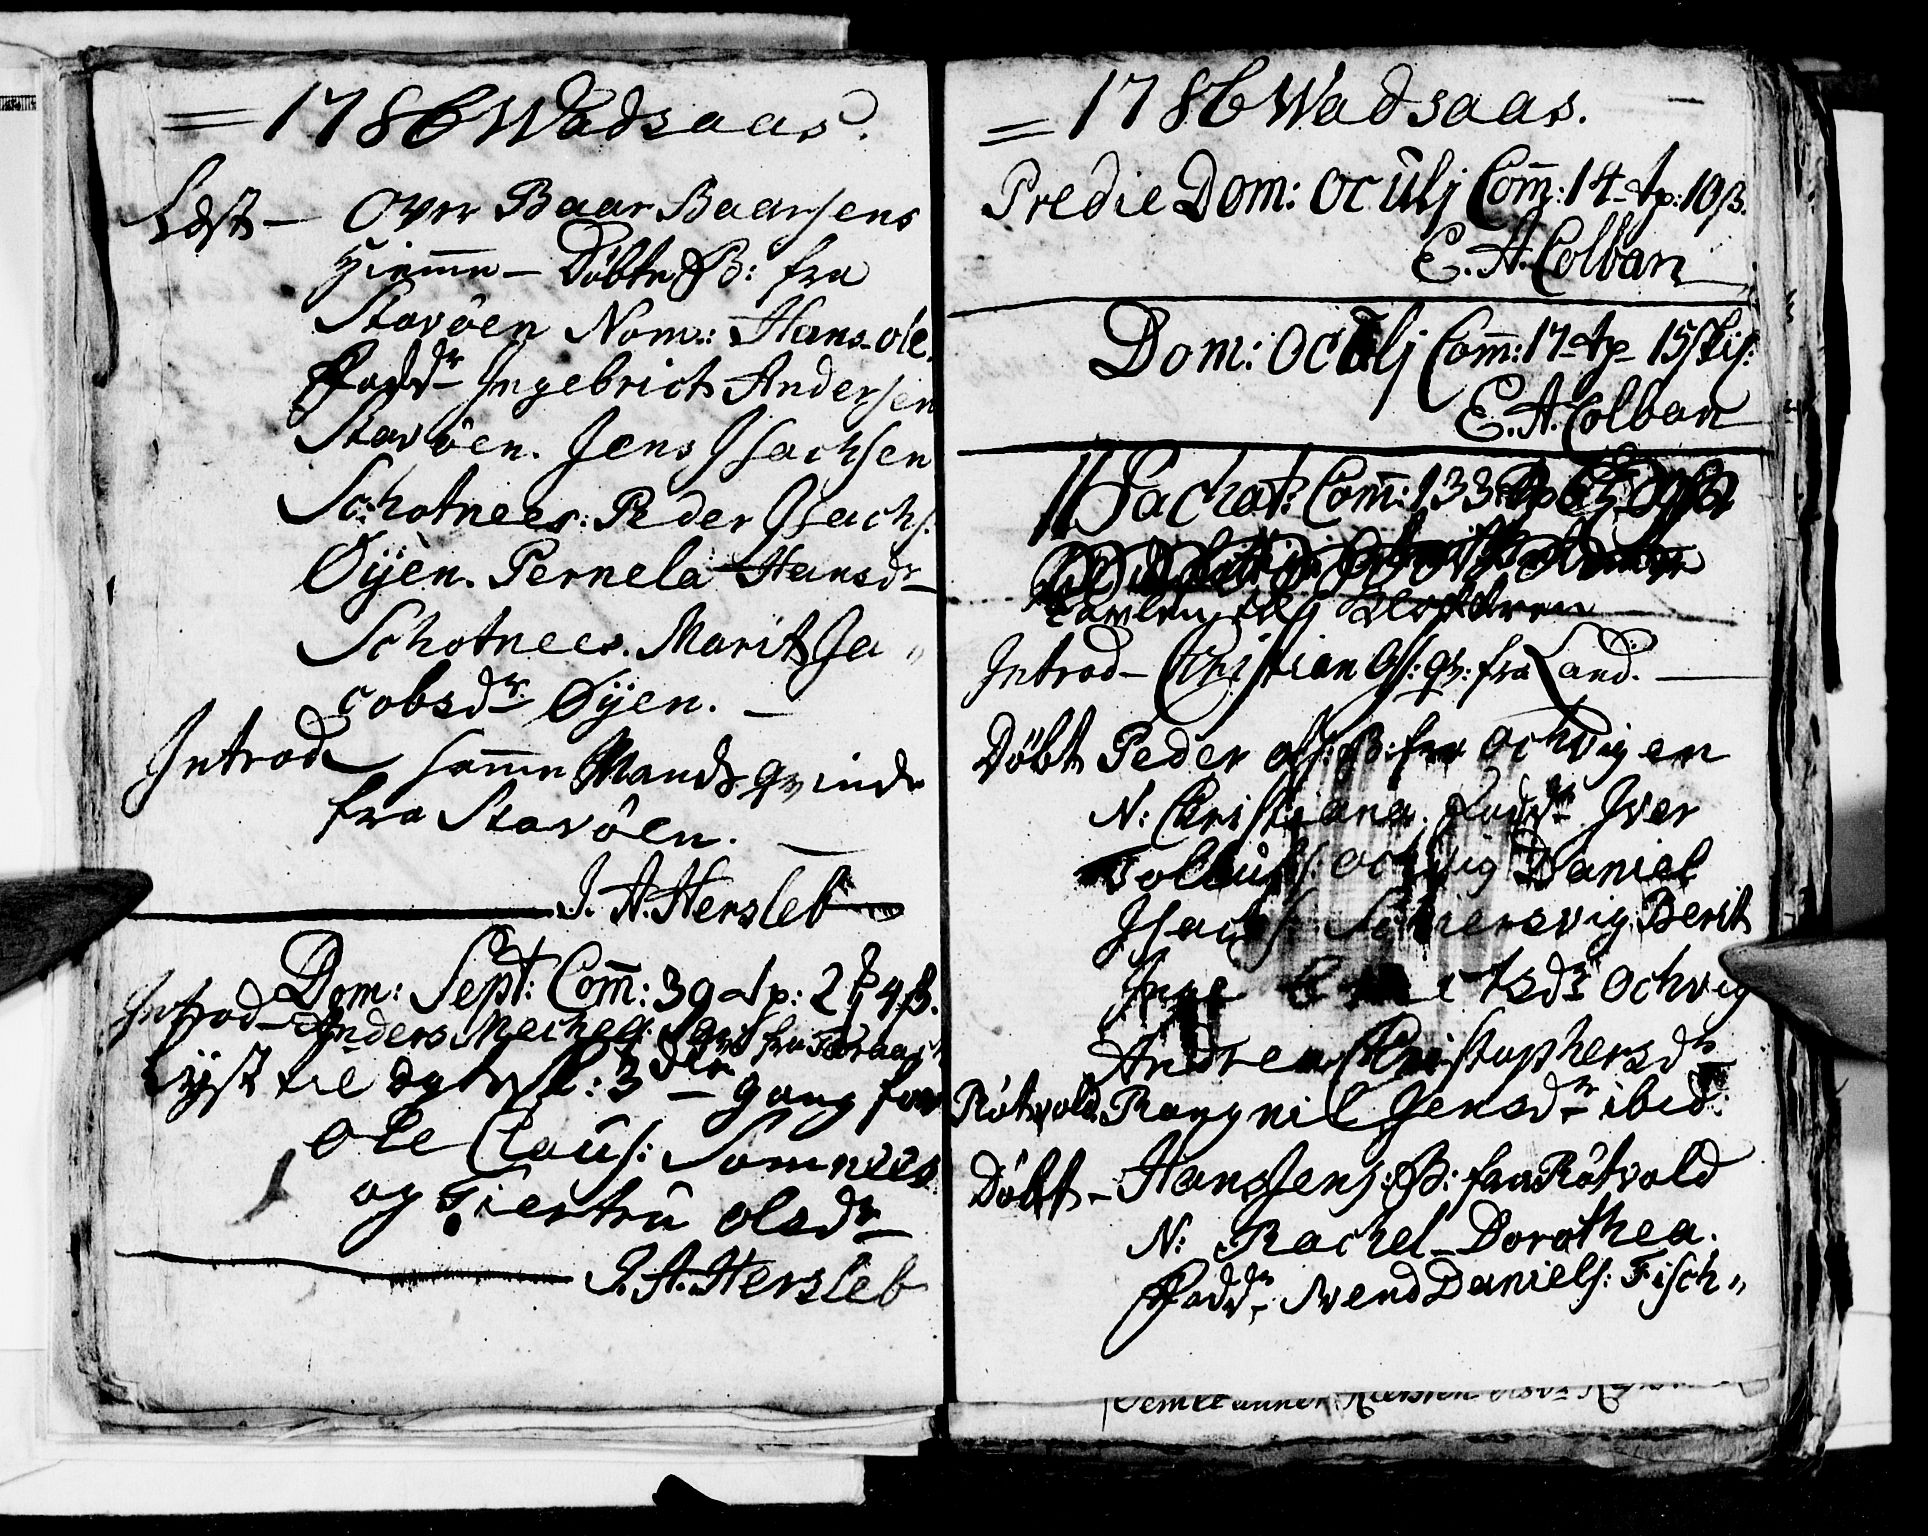 = 1786 Wadsaas.
Læst – Over Baar Baarsens
Hiemme – Döbte B: fra
Stavöen Nom: Hans-ole.
Fadd: Ingebrict Andersen
Stavöen. Jens Isachsen
Schotnees. Peder Isachs:
Öÿen. Pernela Hansdr
Schotnees. Marit Ja„
cobsdr Öÿen. –
Introd samme Mands qvinde
fra Stavöen. –
J. A. Hersleb
Dom: Sept: Com̄: 39 dp: 2 4ß.
Introd – Anders Mechels: qv: fra
Lÿst til 3die gang for
Ole Claus: Somnees
og Giertru olsdr
J. A. Hersleb
= 1786 Wadsaas. –
Predie Dom: Oculj Com̄: 14 dp: 10ß.
E. A. Colban
Dom: Oculj Com̄: 17 dp 15
E. A. Colban
Com̄: 133
Introd – Christian Ols: qv: fra Land. –
Döbt Peder Ols: B: fra Ochvigen
N: Christiana. Fadd: Iver
Ochvig Daniel
Isachs: Berit
Ochvig
Andrea Christophersdr
Rötvold. Rangnil Jensdr ibid:
Döbt – Hans Jens: B: fra Rötvold
N: Rachel Dorothea.
Fadd: Svend Daniels: Fisch„